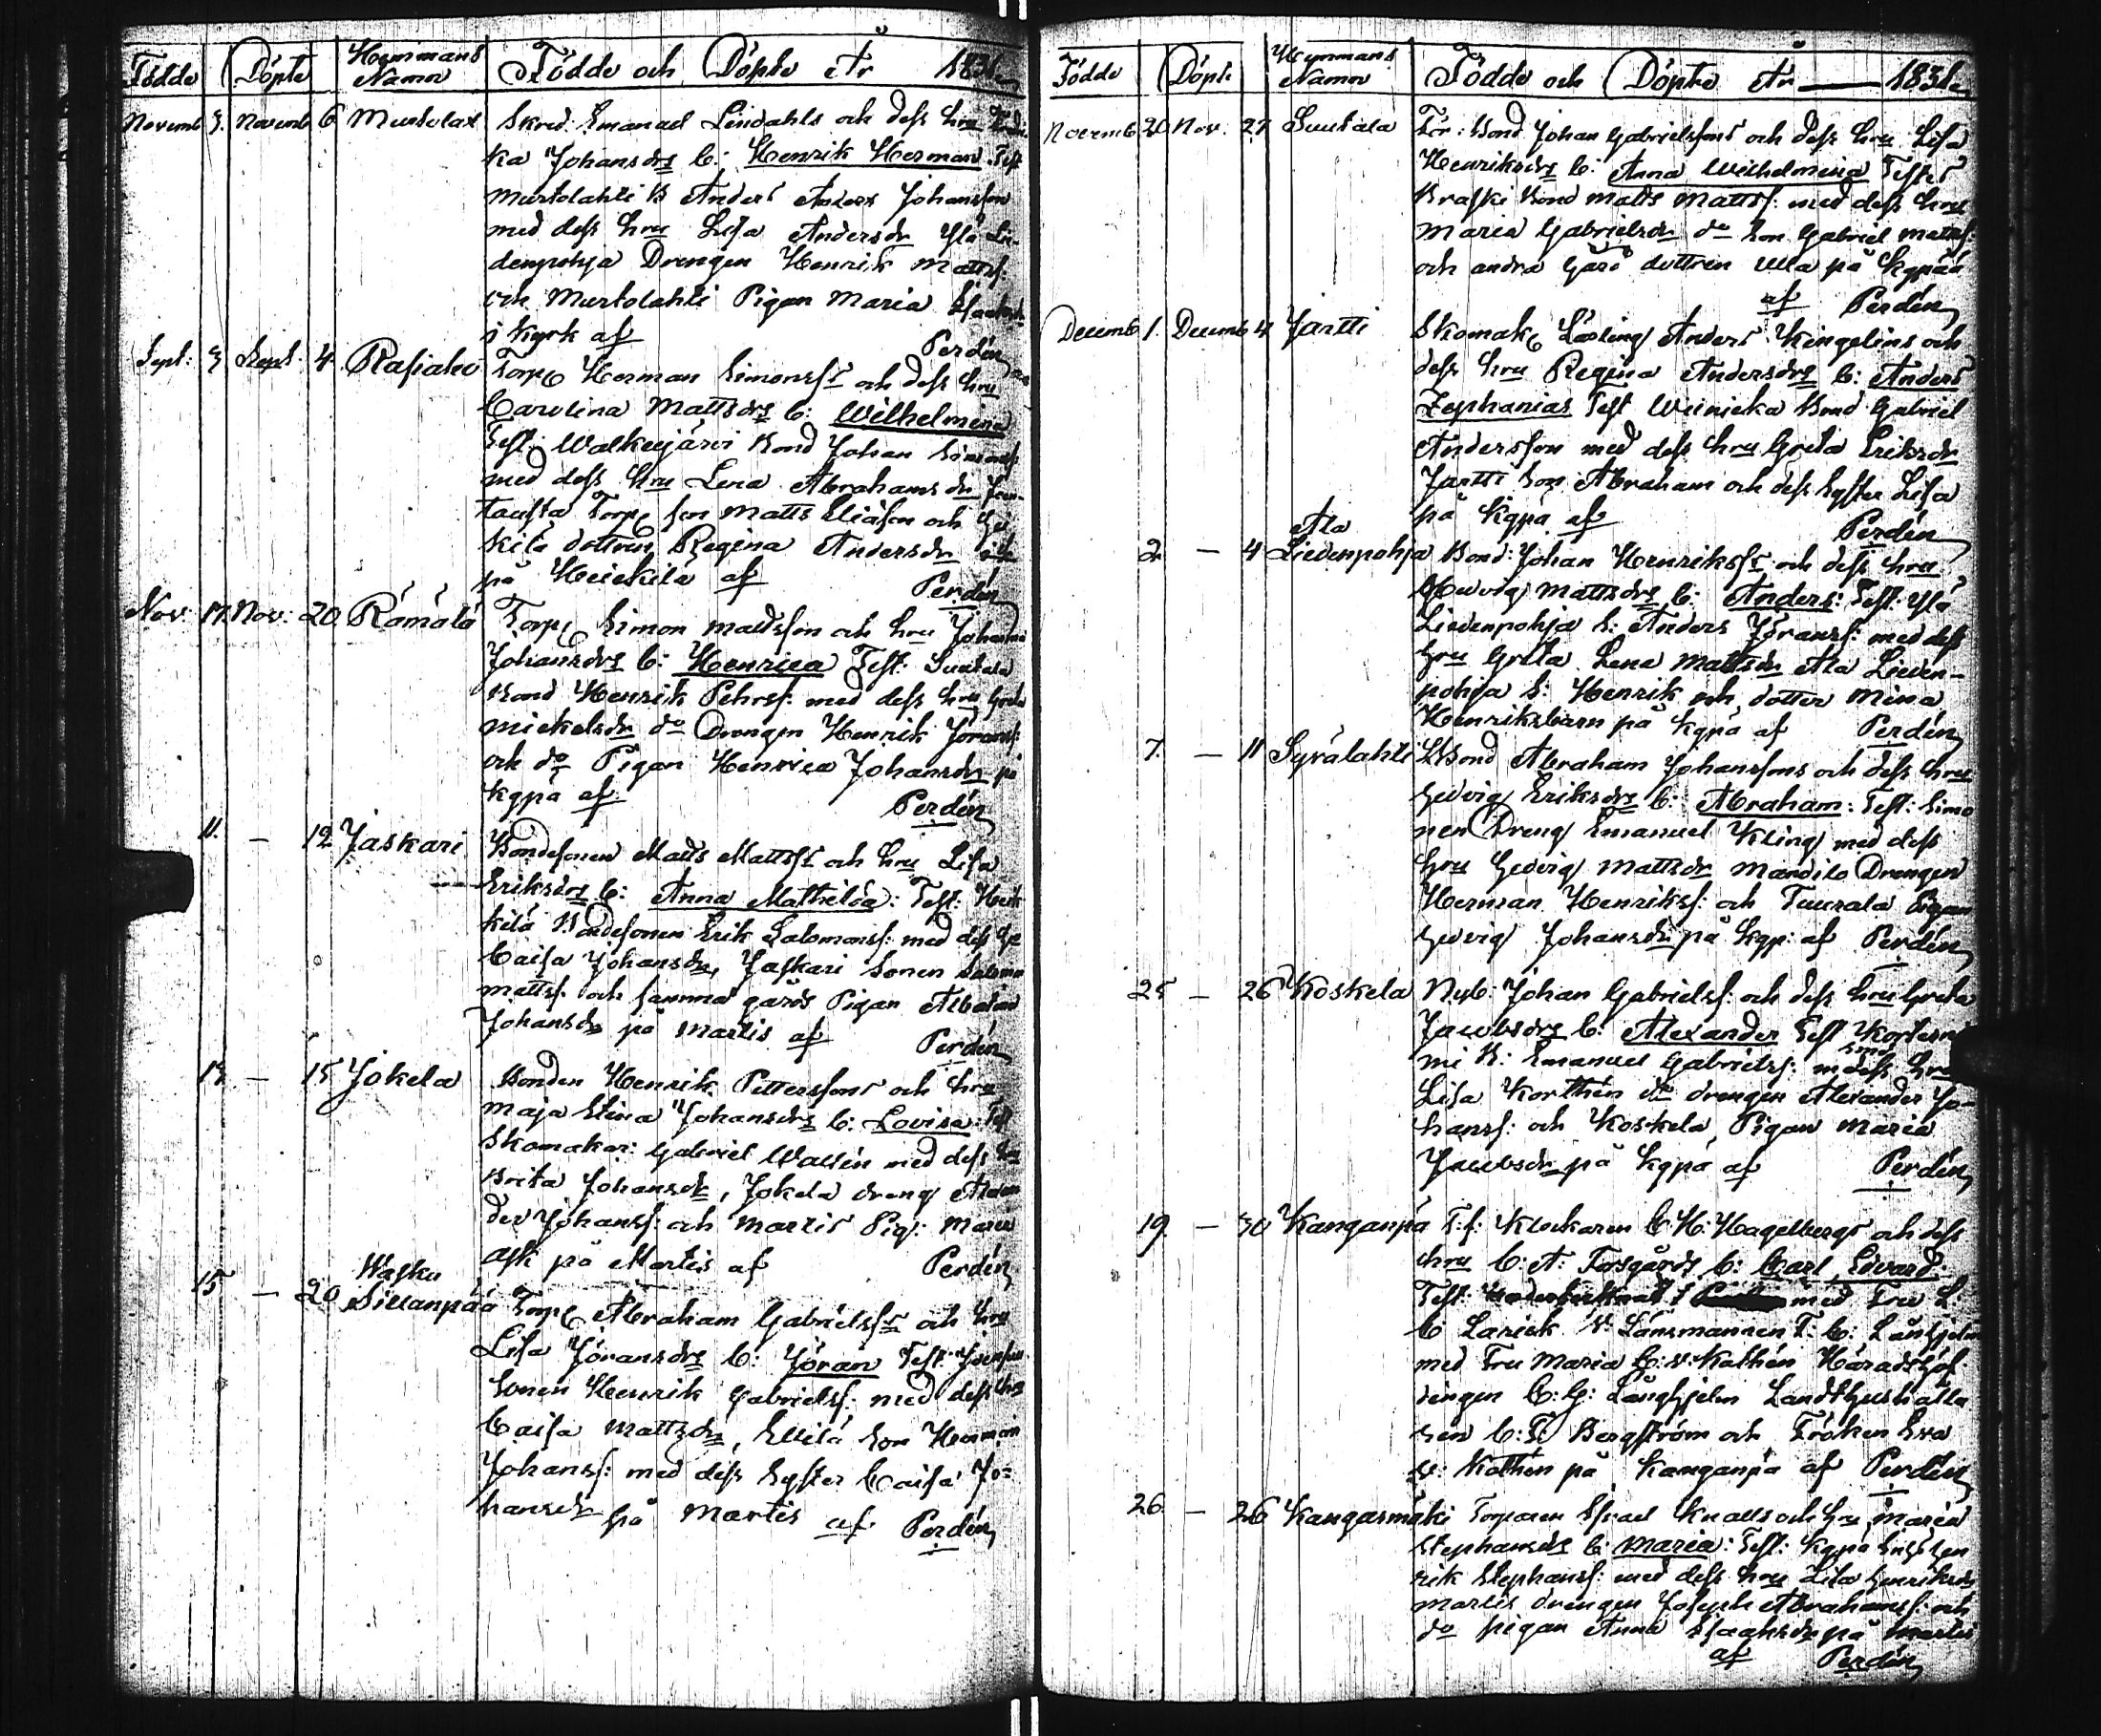 Födde Döpte Hemmans Namn Födde och Döpte År 1831
Novemb 3. Novemb 6 Murtolax Skred: Emanuel Lindahls och dess hru
ka Johansdrs b: Henrik Herman Test
Murtolahti B Anders Anders Johansson
med dess hru Lisa Andersdr Ylä Lie-
denpohja Drengen Henrik Mattss:
och Murtolahti Pigan Maria
i Kyrk af Perdén
Sept: 3 Sept. 4 Rasiaho Torp Herman Simonss och dess hru
Carolina Mattsdrs b: Wilhelmina
Test: Walkeejärvi Bond Johan Simonss
med dess hru Lena Abrahamsdr
tausta Torp son Matts Eliason och
kilä dottren Regina Andersdr
på Heickilä af Perdén
Nov. 17. Nov: 20 Römälä Torp Simon Mattsson och hru Johanna
Johansdrs b: Henrica Test: Suutala
Bond Henrik Pehrss: med dess hru Greta
Mickelsdr do Drengen Henrik Jöranss:
och do Pigan Henrica Johansdr på
kgpa af Perdén
11. — 12 Jaskari Bondesonen Matts Mattss och hru Lisa
Eriksdrs b: Anna Mathilda: Test: Heik
kilä Bondesonen Erik Salomonss: med dess
Caisa Johansdr, Jaskari Sonen Salomon
Mattss: och samma gårds Pigan
Johansdr på Martis af Perdén
13 — 15 Jokela Bonden Henrik Petterssons och hru
Maja Stina Johansdrs b: Lovisa: Test
Skomakar: Gabriel Wallén med dess hru
Brita Johansdr, Jokela dreng Alexan
der Johanss: och Martis Pig: Maria
på Martis af Perdén
15 — 20 Wasku
Sillanpää Torp Abraham Gabrielss och hru
Lisa Jöransdrs b: Jöran Test:
Sonen Henrik Gabrielss: med dess hru
Caisa Mattsdr, Ellilä Son Herman
Johanss: med dess Syster Caisa Jo=
hansdr på Martis af Perdén
Födde Döpte Hemmans Namn Födde och Döpte År — 1831
Novemb 20 Nov. 27 Suutala För: Bond Johan Gabrielssons och dess hru Lisa
Henriksdrs b: Anna Wilhelmina Testes
Kraski Bond Matts Mattss: med dess hru
Maria Gabrielsdr do Son Gabriel Mattss:
och andra gårds dottren Ulla på kgpaa
af Perdén
Decemb 1. Decemb 4 Jartti Skomak Lärling Anders Kingelins och
dess hru Regina Andersdrs b: Anders
Zephanias Test Weinicka Bond Gabriel
Andersson med dess hru Greta Eriksdr
Jartti Son Abraham och dess Syster Lisa
på kgpa af Perdén
2 — 4 Ala
Liedenpohja Bond: Johan Henrikss och dess hru
Hedvig Mattsdrs b: Anders: Test: Ylä
Liedenpohja B: Anders Jöranss: med dess
hru Greta Lena Mattsdr Ala Lieden-
pohja S: Henrik och dotter Mina
Henriksbarn på kgpa af Perdén
7. — 11 Syrälahti Bond Abraham Johanssons och dess hru
Hedvig Eriksdrs b: Abraham: Test: Simo
nen Dreng Emanuel Kling med dess
hru Hedvig Mattsdr Mandila Drengen
Herman Henrikss: och Tuurala Pigan
Hedvig Johansdr på kgp: af Perdén
25 — 26 Koskela Nyb: Johan Gabrielss: och dess hru Greta
Jacobsdrs b: Alexander Test
mi B: Emanuel Gabrielss: m dess hru
Lisa Korthén do drengen Alexander Jo-
hanss: och Koskela, Pigan Maria
Jacobsdr på kgpa af Perdén
19 — 30 Kanganpä T: f: Klockaren C: H: Hagelbergs och dess
hru C: A: Forsgårds b: Carl Edvard.
Test: med Fru L:
C: Länsmannen F: C: Långhjelm
med Fru Maria C: v: Kothén Häradshöf-
dingen C: G: Långhjelm Landthushålla
ren C: F: Bergström och Fröken Eva
v: Kothén på Kanganpä af Perdén
26 — 26 Kangasmäki Torparen Israel Knalls och hru Maria
Stephansdr b: Maria: Test: kgpa hen
rik Stephanss: med dess hru Lisa Henriksdr
Martis drengen Joseph Abrahamss: och
do pigan Anna Isaaksdr på Martis
af Perdén